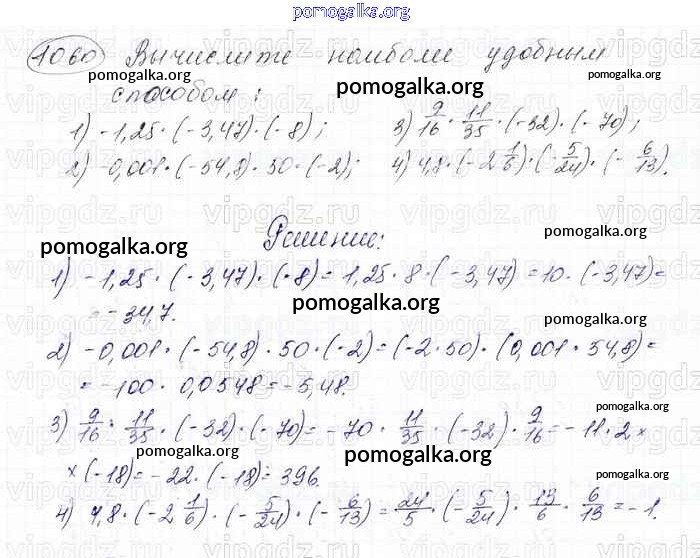 pomogalka.org
1060 Вычислите наиболее удобным
pomogalka.org pomogalka.org pomogalka.org
способом:
1) -1,25 · (-3,47) · (-8); 3) 9/16 · 11/35 · (-32) · (-70);
2) -0,001 · (-54,8) · 50 · (-2); 4) 4,8 · (-2 1/6) · (-5/24) · (-6/13).
Решение:
pomogalka.org pomogalka.org
1) -1,25 · (-3,47) · (-8) = 1,25 · 8 · (-3,47) = 10 · (-3,47) =
= -34,7.
pomogalka.org
pomogalka.org
2) -0,001 · (-54,8) · 50 · (-2) = (-2 · 50) · (0,001 · 54,8) =
= -100 · 0,0548 = -5,48.
pomogalka.org
3) 9/16 · 11/35 · (-32) · (-70) = -70 · 11/35 · (-32) · 9/16 = -11 · 2 ×
× (-18) = -22 · (-18) = 396.
pomogalka.org
pomogalka.org
4) 4,8 · (-2 1/6) · (-5/24) · (-6/13) = 24/5 · (-5/24) · 13/6 · 6/13 = -1.
pomogalka.org pomogalka.org